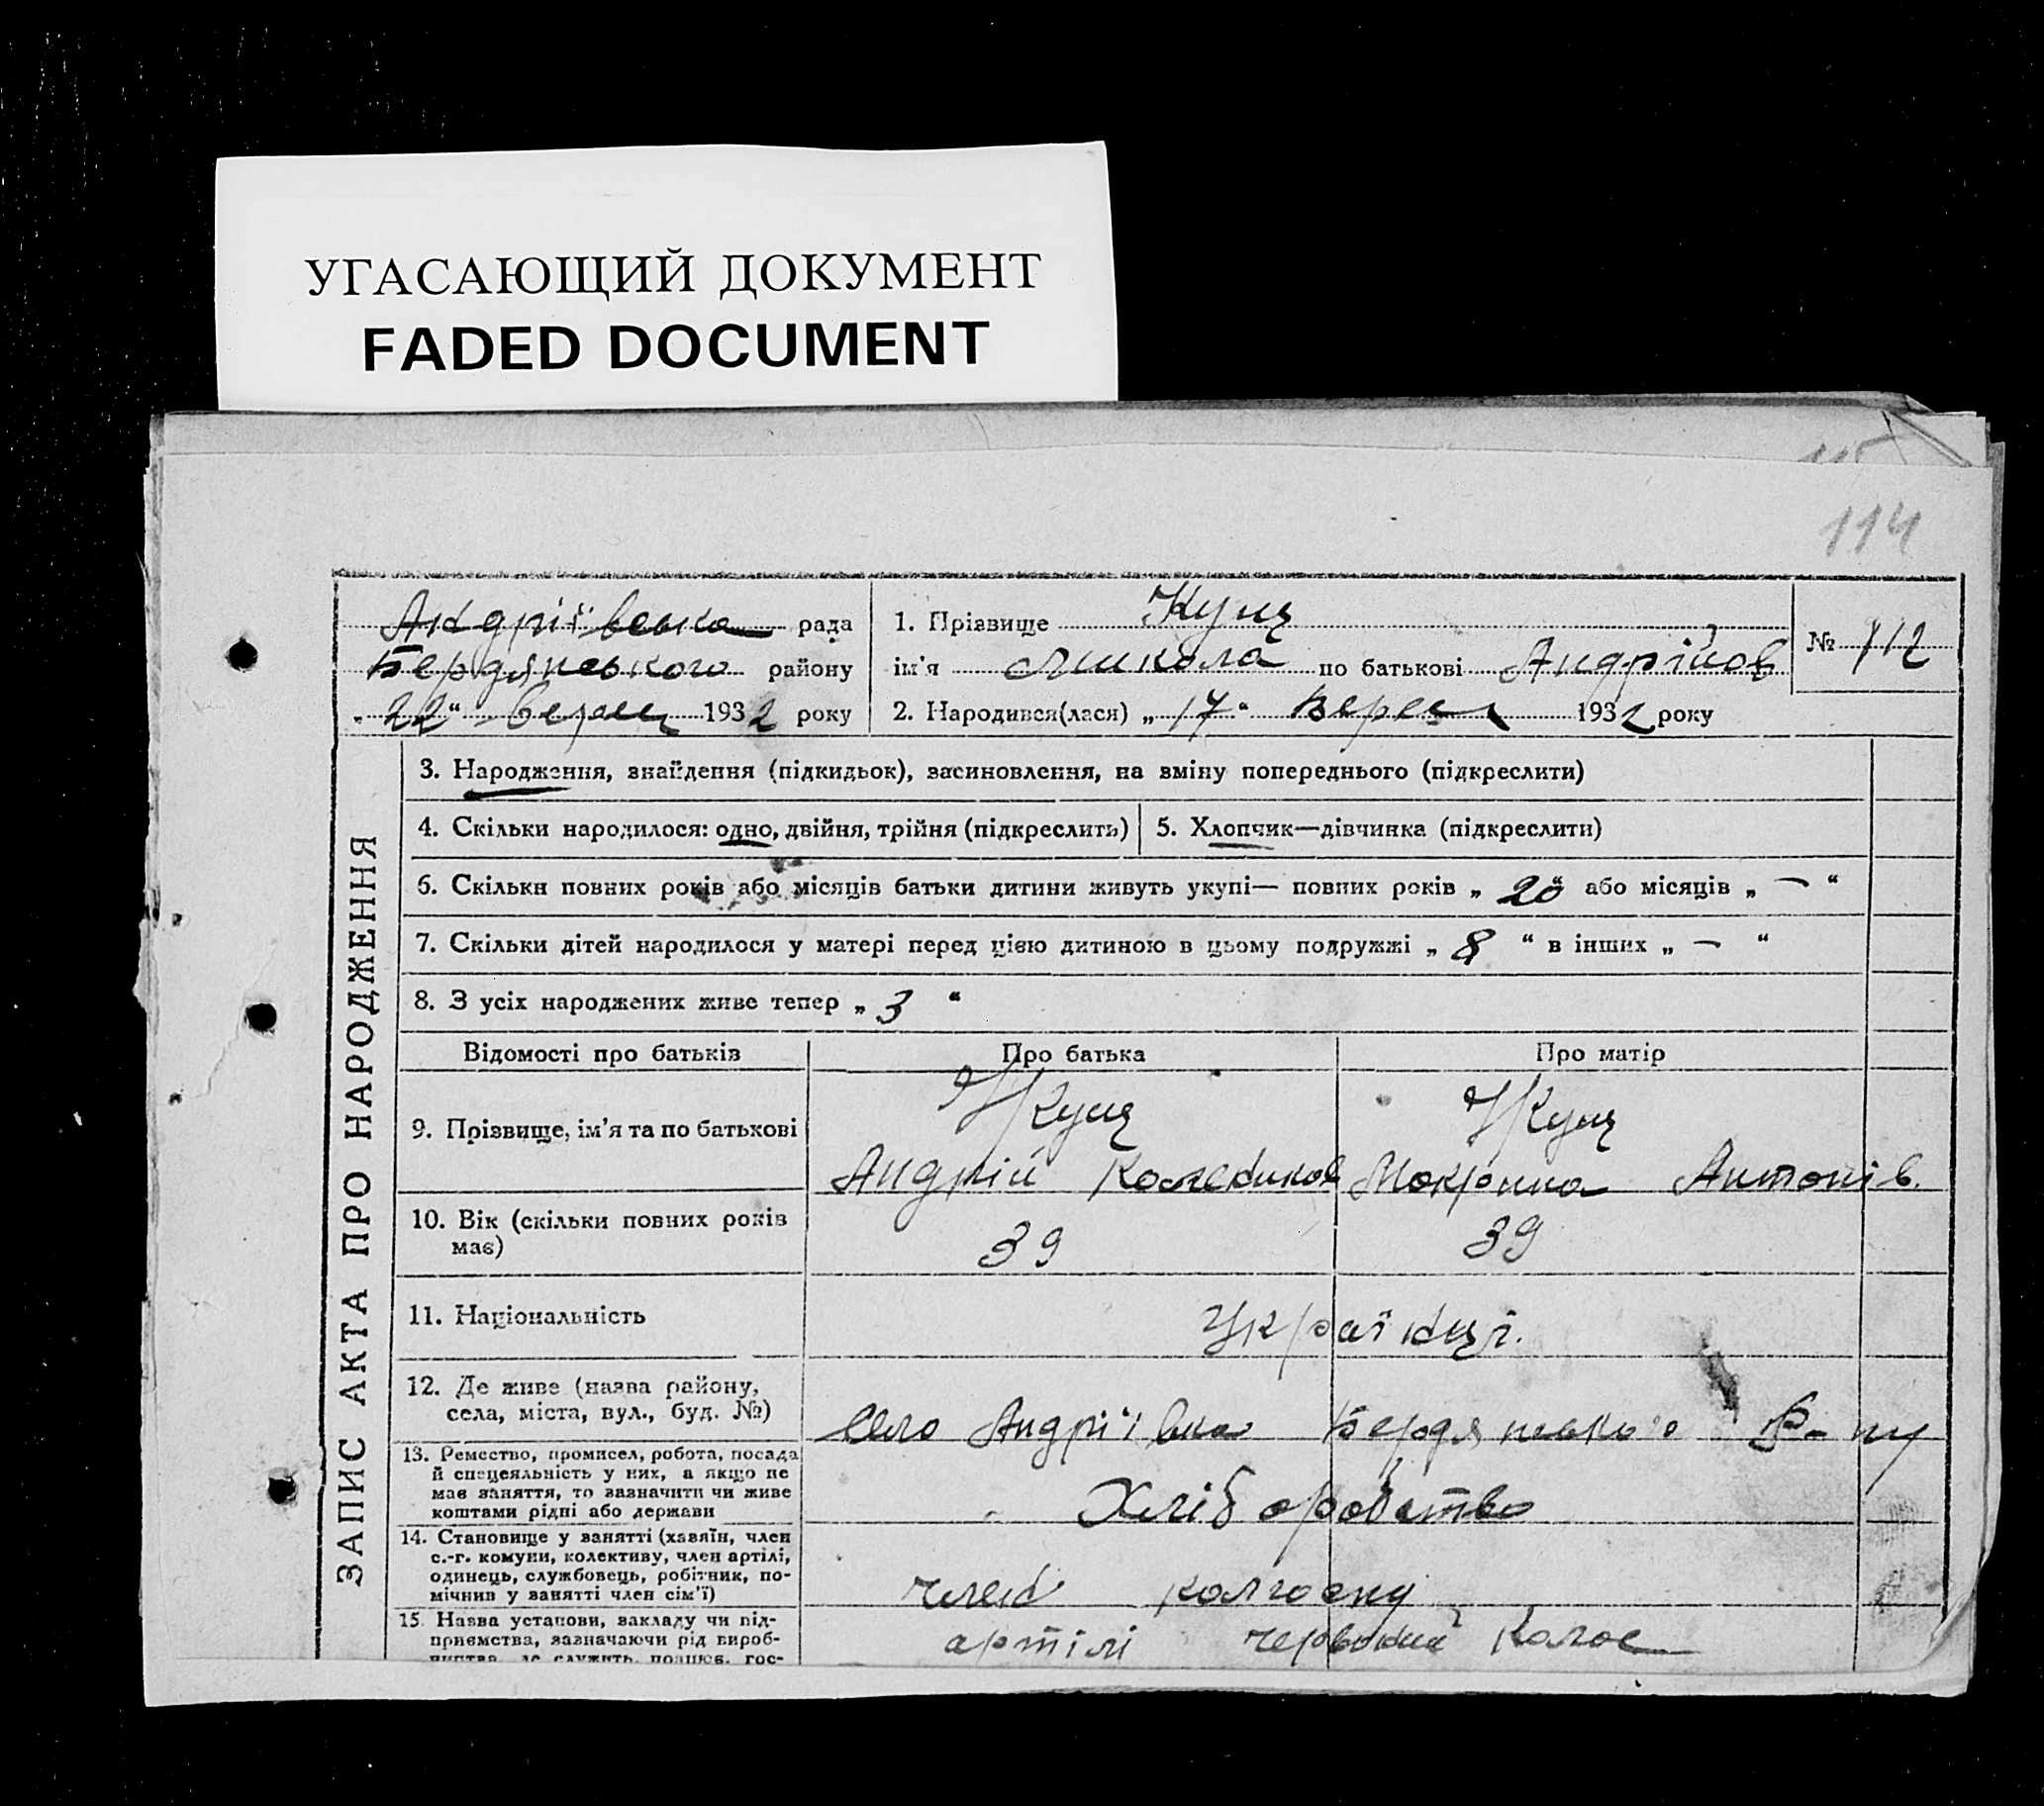 УГАСАЮЩИЙ ДОКУМЕНТ
FADED DOCUMENT
114
Андріївська рада
Бердянського району
„22“ Верес 1932 року
1. Прізвище Куц
ім'я Микола по батькові Андрійов
№ 112
2. Народився(лася) „17“ Верес 1932 року
ЗАПИС АКТА ПРО НАРОДЖЕННЯ
3. Народження, знайдення (підкидьок), засиновлення, на зміну попереднього (підкреслити)
4. Скільки народилося: одно, двійня, трійня (підкреслить)
5. Хлопчик—дівчинка (підкреслити)
6. Скільки повних років або місяців батьки дитини живуть укупі— повних років „20“ або місяців „—“
7. Скільки дітей народилося у матері перед цією дитиною в цьому подружжі „8“ в інших „—“
8. З усіх народжених живе тепер „3“
Відомості про батьків
Про батька
Про матір
9. Прізвище, ім'я та по батькові
Куц
Андрій
Куц
Мокрина Антонів.
10. Вік (скільки повних років
має)
39
39
11. Національність
Українці.
12. Де живе (назва району,
села, міста, вул., буд. №)
село Андріївка Бердянського Р-ну
13. Ремество, промисел, робота, посада
й спецеяльність у них, а якщо не
має заняття, то зазначити чи живе
коштами рідні або держави
Хліборобство
14. Становище у занятті (хазяїн, член
с.-г. комуни, колективу, член артілі,
одинець, службовець, робітник, по-
мічнив у занятті член сім'ї)
член колгоспу
15. Назва установи, закладу чи під-
приємства, зазначаючи рід вироб-
ництва, де служить, працює, гос-
артілі червоний Колос